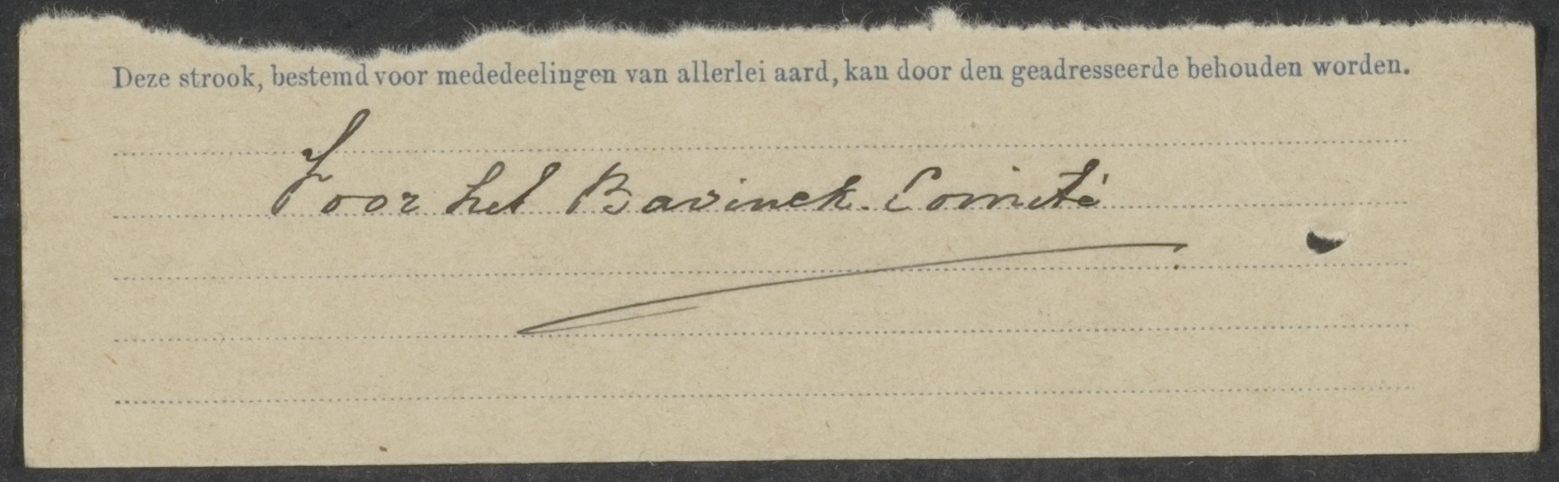 Deze strook, bestemd voor mededeelingen van allerlei aard, kan door den geadresseerde behouden worden.
Voor het Bavinck-Comité